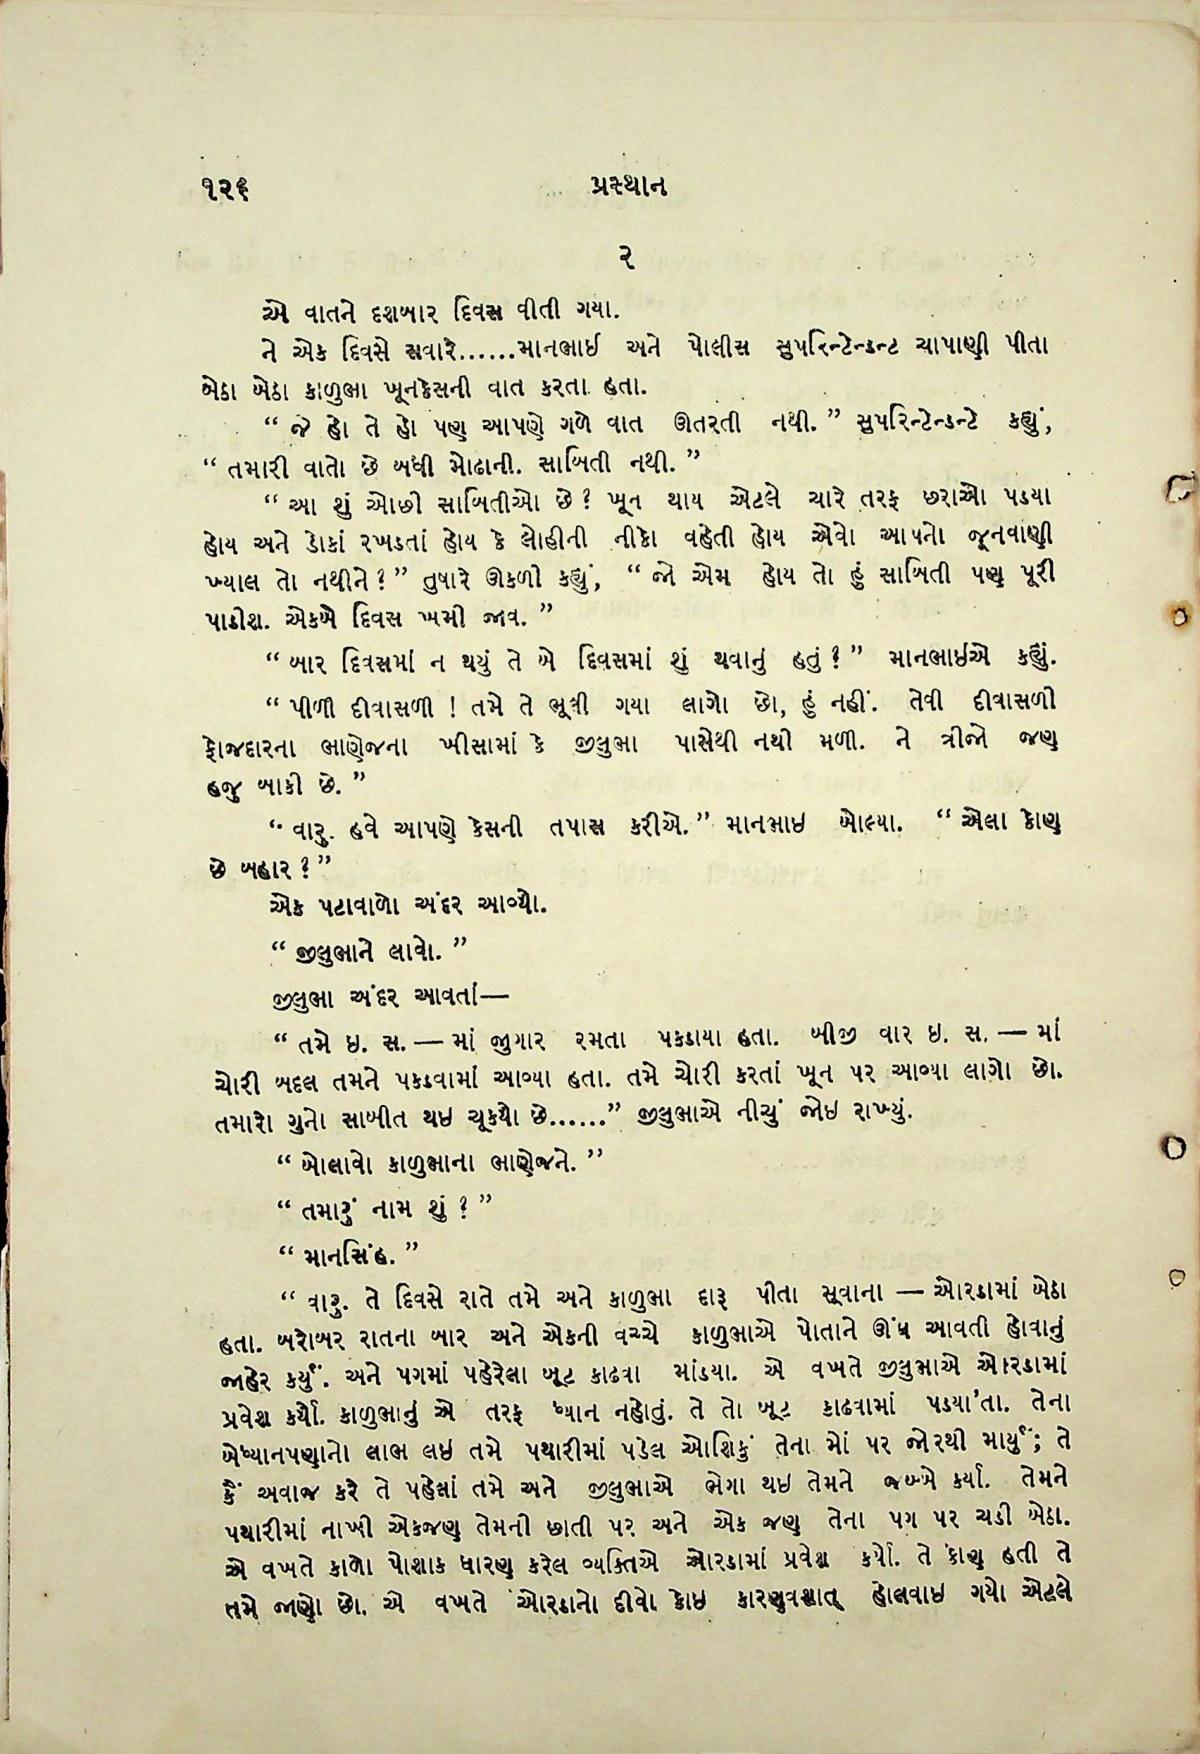 ૧૨૬ પ્રસ્થાન
૨
એ વાતને દશબાર દિવસ વીતી ગયા.
ને એક દિવસે સવારે......માનભાઈ અને પોલીસ સુપરિન્ટેન્ડન્ટ ચાપાણી પીતા
બેઠા બેઠા કાળુભા ખૂનકેસની વાત કરતા હતા.
“ જે હો તે હો પણ આપણે ગળે વાત ઊતરતી નથી. ” સુપરિન્ટેન્ડન્ટે કહ્યું,
“ તમારી વાતો છે બધી મોઢાની. સાબિતી નથી. ”
“ આ શું ઓછી સાબિતીઓ છે? ખૂન થાય એટલે ચારે તરફ છરાઓ પડયા
હોય અને ડોકાં રખડતાં હોય કે લોહીની નીકો વહેતી હોય એવો આપનો જૂનવાણી
ખ્યાલ તો નથીને? ” તુષારે ઊકળી કહ્યું, “ જો એમ હોય તો હું સાબિતી પણ પૂરી
પાડીશ. એકબે દિવસ ખમી જાવ. ”
“ બાર દિવસમાં ન થયું તે બે દિવસમાં શું થવાનું હતું? ” માનભાઈએ કહ્યું.
“ પીળી દીવાસળી ! તમે તે ભૂલી ગયા લાગો છો, હું નહીં. તેવી દીવાસળી
ફોજદારના ભાણેજના ખીસામાં કે જીલુભા પાસેથી નથી મળી. ને ત્રીજો જણ
હજુ બાકી છે. ”
“ વારુ. હવે આપણે કેસની તપાસ કરીએ. ” માનભાઇ બોલ્યા. “ એલા કોણ
છે બહાર? ”
એક પટાવાળો અંદર આવ્યો.
“ જીલુભાને લાવો. ”
જીલુભા અંદર આવતાં—
“ તમે ઇ. સ. — માં જુગાર રમતા પકડાયા હતા. બીજી વાર ઇ. સ. — માં
ચોરી બદલ તમને પકડવામાં આવ્યા હતા. તમે ચોરી કરતાં ખૂન પર આવ્યા લાગો છો.
તમારો ગુનો સાબીત થઇ ચૂકયો છે......” જીલુભાએ નીચું જોઇ રાખ્યું.
“ બોલાવો કાળુભાના ભાણેજને. ”
“ તમારું નામ શું? ”
“ માનસિંહ. ”
“ વારુ. તે દિવસે રાતે તમે અને કાળુભા દારૂ પીતા સૂવાના — ઓરડામાં બેઠા
હતા. બરોબર રાતના બાર અને એકની વચ્ચે કાળુભાએ પોતાને ઊંઘ આવતી હોવાનું
જાહેર કર્યું. અને પગમાં પહેરેલા બૂટ કાઢવા માંડયા. એ વખતે જીલુભાએ ઓરડામાં
પ્રવેશ કર્યો. કાળુભાનું એ તરફ ધ્યાન નહોતું. તે તો બૂટ કાઢવામાં પડયા’તા. તેના
બેધ્યાનપણાનો લાભ લઇ તમે પથારીમાં પડેલ ઓશિકું તેના મોં પર જોરથી માર્યું; તે
કૈં અવાજ કરે તે પહેલાં તમે અને જીલુભાએ ભેગા થઇ તેમને જબ્બે કર્યા. તેમને
પથારીમાં નાખી એકજણ તેમની છાતી પર અને એક જણ તેના પગ પર ચડી બેઠા.
એ વખતે કાળો પોશાક ધારણ કરેલ વ્યક્તિએ ઓરડામાં પ્રવેશ કર્યો. તે કોણ હતી તે
તમે જાણો છો. એ વખતે ઓરડાનો દીવો કોઇ કારણવશાત્ હોલવાઇ ગયો એટલે